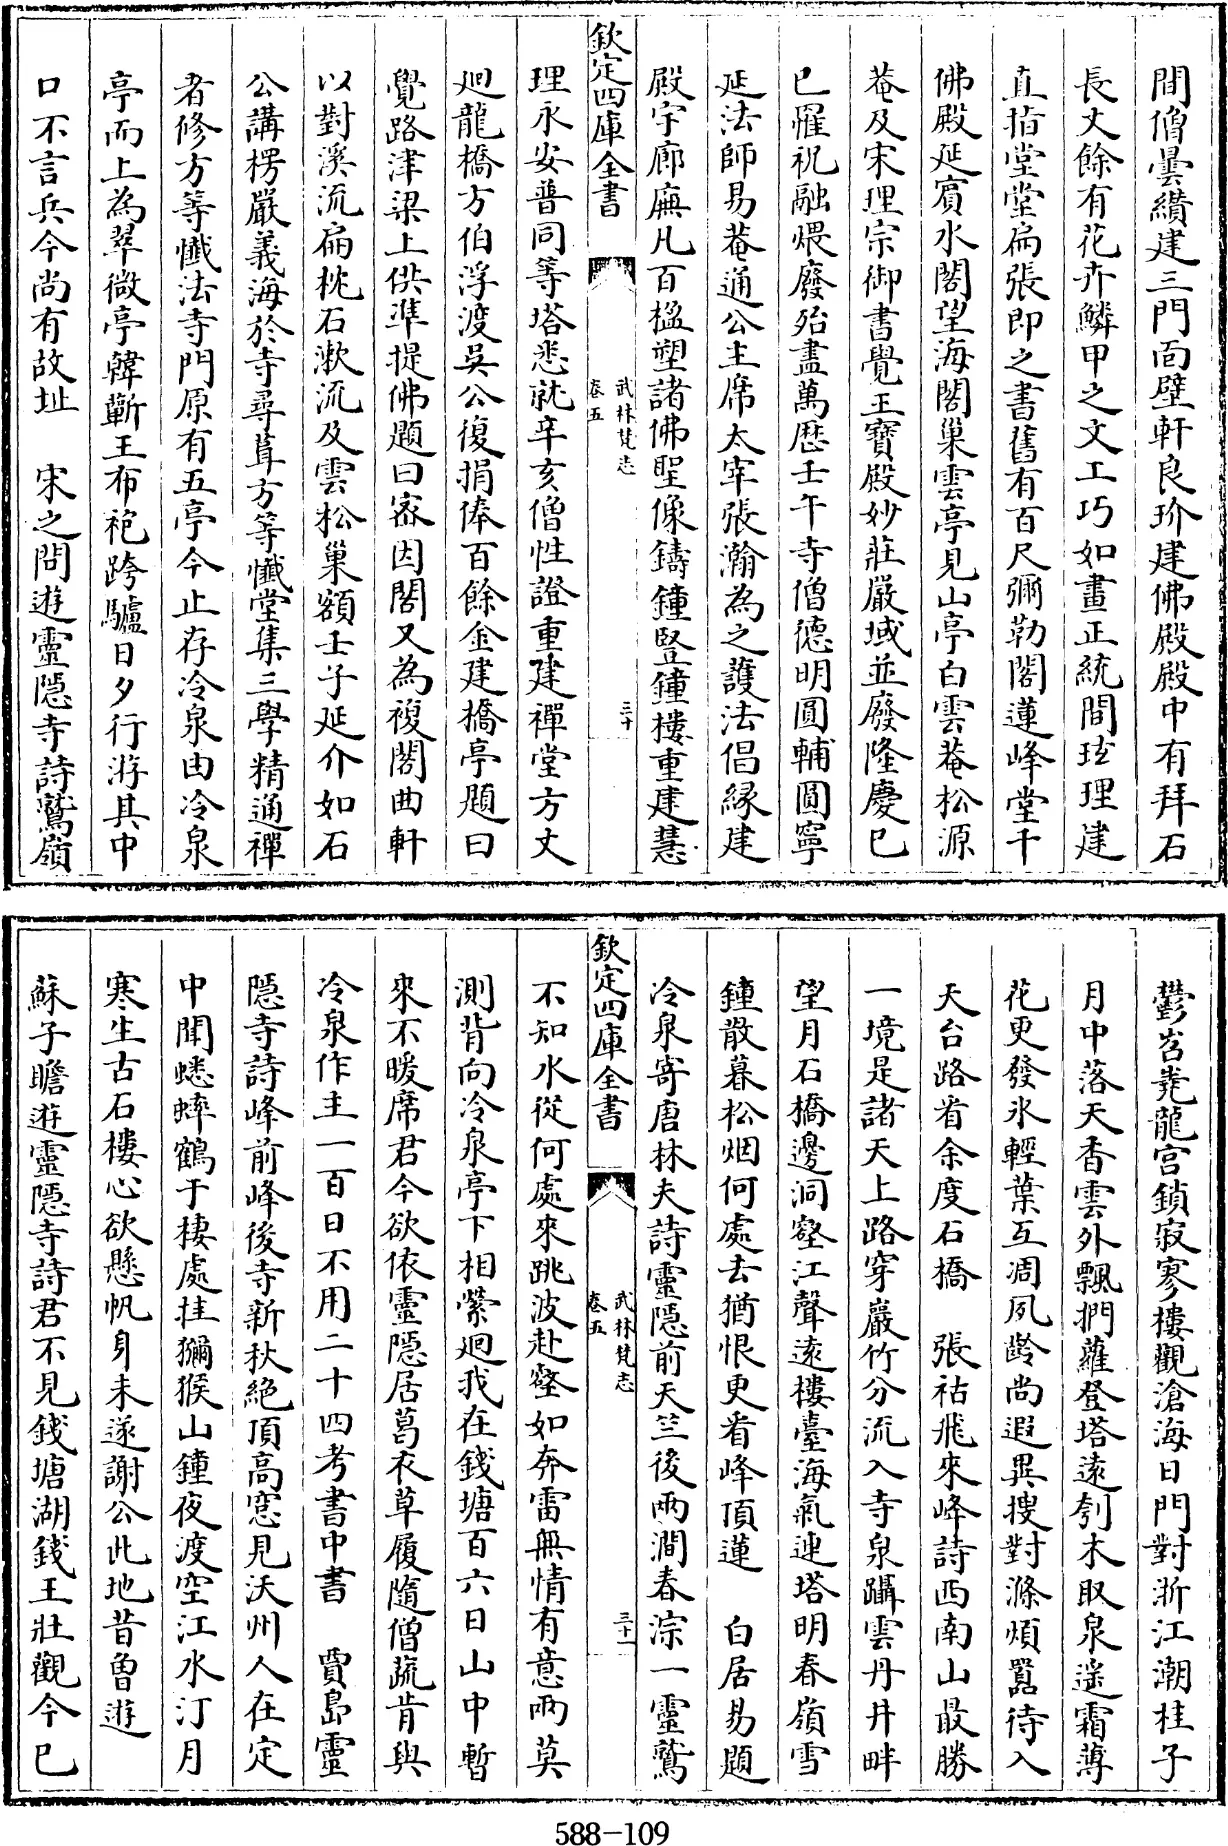 間僧曇纘建三門面壁軒良玠建佛殿殿中有拜石
長丈餘有花卉鱗甲之文工巧如畫正統間玹理建
直指堂堂扁張即之書舊有百尺彌勒閣蓮峰堂千
佛殿延賓水閣望海閣巢雲亭見山亭白雲菴松源
菴及宋理宗御書覺王寶殿妙莊嚴域並廢隆慶己
巳罹祝融煨廢殆盡萬歷壬午寺僧德明圓輔圓寧
延法師易菴通公主席太宰張瀚為之護法倡緣建
殿宇廊廡凡百楹塑諸佛聖像鑄鐘豎鐘樓重建慧
欽定四庫全書
武林梵志
卷五
三十
理永安普同等塔悉就辛亥僧性證重建禪堂方丈
廻龍橋方伯浮渡吳公復捐俸百餘金建橋亭題曰
覺路津梁上供準提佛題曰密因閣又為複閣曲軒
以對溪流扁枕石漱流及雲松巢額壬子延介如石
公講楞嚴義海於寺尋葺方等懺堂集三學精通禪
者修方等懺法寺門原有五亭今止存冷泉由冷泉
亭而上為翠微亭韓蘄王布袍跨驢日夕行游其中
口不言兵今尚有故址　宋之問遊靈隱寺詩鷲嶺
鬱岧嶤龍宮鎖寂寥樓觀滄海日門對浙江潮桂子
月中落天香雲外飄捫蘿登塔遠刳木取泉遥霜薄
花更發氷輕葉互凋夙齡尚遐異搜對滌煩囂待入
天台路看余度石橋　張祜飛來峰詩西南山最勝
一境是諸天上路穿巖竹分流入寺泉躡雲丹井畔
望月石橋邊洞壑江聲遠樓臺海氣連塔明春嶺雪
鐘散暮松烟何處去猶恨更看峰頂蓮　白居易題
冷泉寄唐林夫詩靈隱前天竺後兩澗春淙一靈鷲
欽定四庫全書
武林梵志
卷五
三十一
不知水從何處來跳波赴壑如奔雷無情有意兩莫
測背向冷泉亭下相縈廻我在錢塘百六日山中暫
來不暖席君今欲依靈隱居葛衣草履隨僧蔬肯與
冷泉作主一百日不用二十四考書中書　賈島靈
隱寺詩峰前峰後寺新秋絶頂高窓見沃州人在定
中聞蟋蟀鶴于棲處挂獼猴山鐘夜渡空江水汀月
寒生古石樓心欲懸帆身未遂謝公此地昔曾遊
蘇子瞻遊靈隱寺詩君不見錢塘湖錢王壯觀今已
588-109